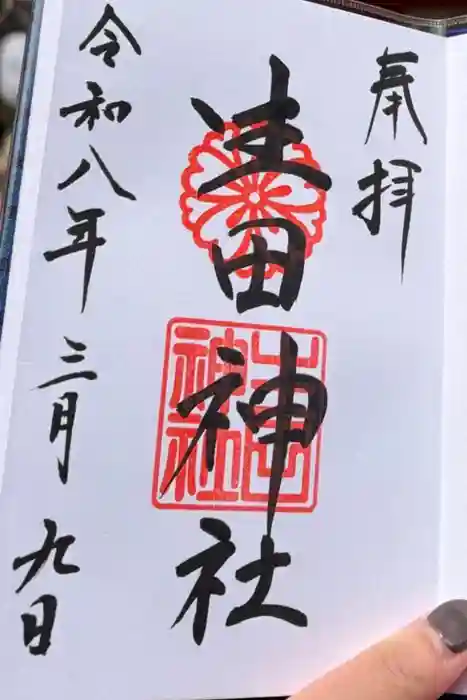 奉拝
生田神社
令和八年三月九日
生田神社